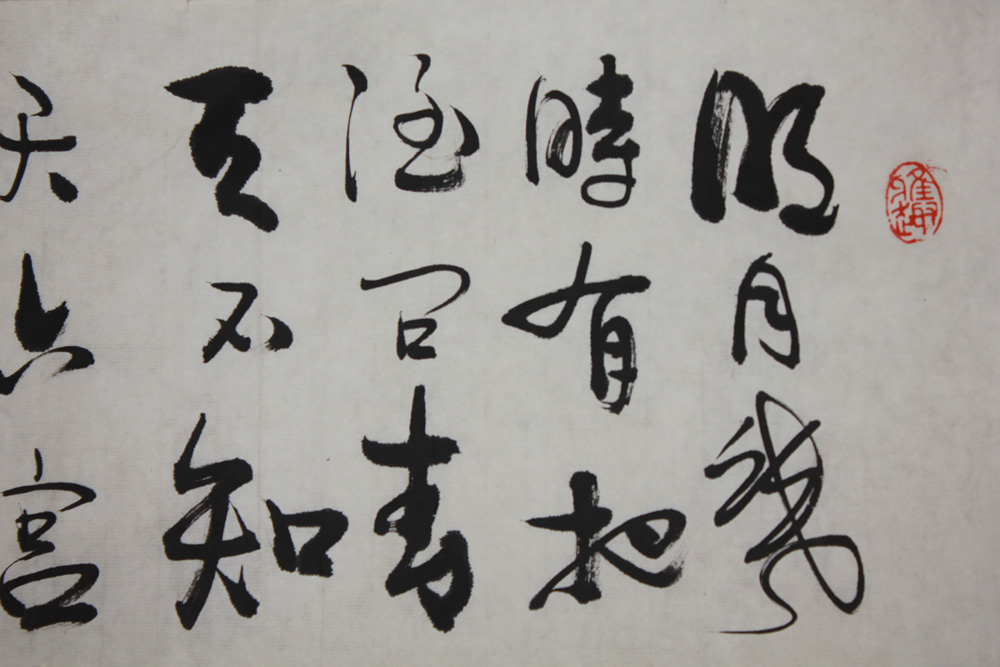 雅趣
明月幾
時有把
酒問青
天不知
天上宮